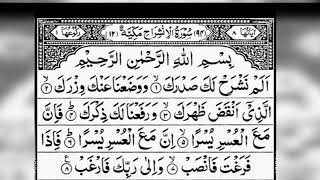 اٰیَاتُهَا ٨ (٩٤) سُوْرَةُ الْاِنْشِرَاحِ مَكِّیَّةٌ (١٢) رُكُوْعُهَا ١
بِسْمِ اللّٰهِ الرَّحْمٰنِ الرَّحِیْمِ
اَلَمْ نَشْرَحْ لَكَ صَدْرَكَ ۝١ وَوَضَعْنَا عَنْكَ وِزْرَكَ ۝٢
الَّذِیْۤ اَنْقَضَ ظَهْرَكَ ۝٣ وَرَفَعْنَا لَكَ ذِكْرَكَ ۝٤ فَاِنَّ
مَعَ الْعُسْرِ یُسْرًا ۝٥ اِنَّ مَعَ الْعُسْرِ یُسْرًا ۝٦ فَاِذَا
فَرَغْتَ فَانْصَبْ ۝٧ وَاِلٰى رَبِّكَ فَارْغَبْ ۝٨